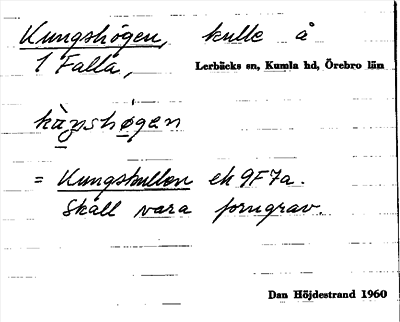 Kungshögen, kulle å
1 Falla, Lerbäcks sn, Kumla hd, Örebro län
kàŋshøgan
= Kungskullen ek 9F7a.
Skall vara forngrav.
Dan Höjdestrand 1960